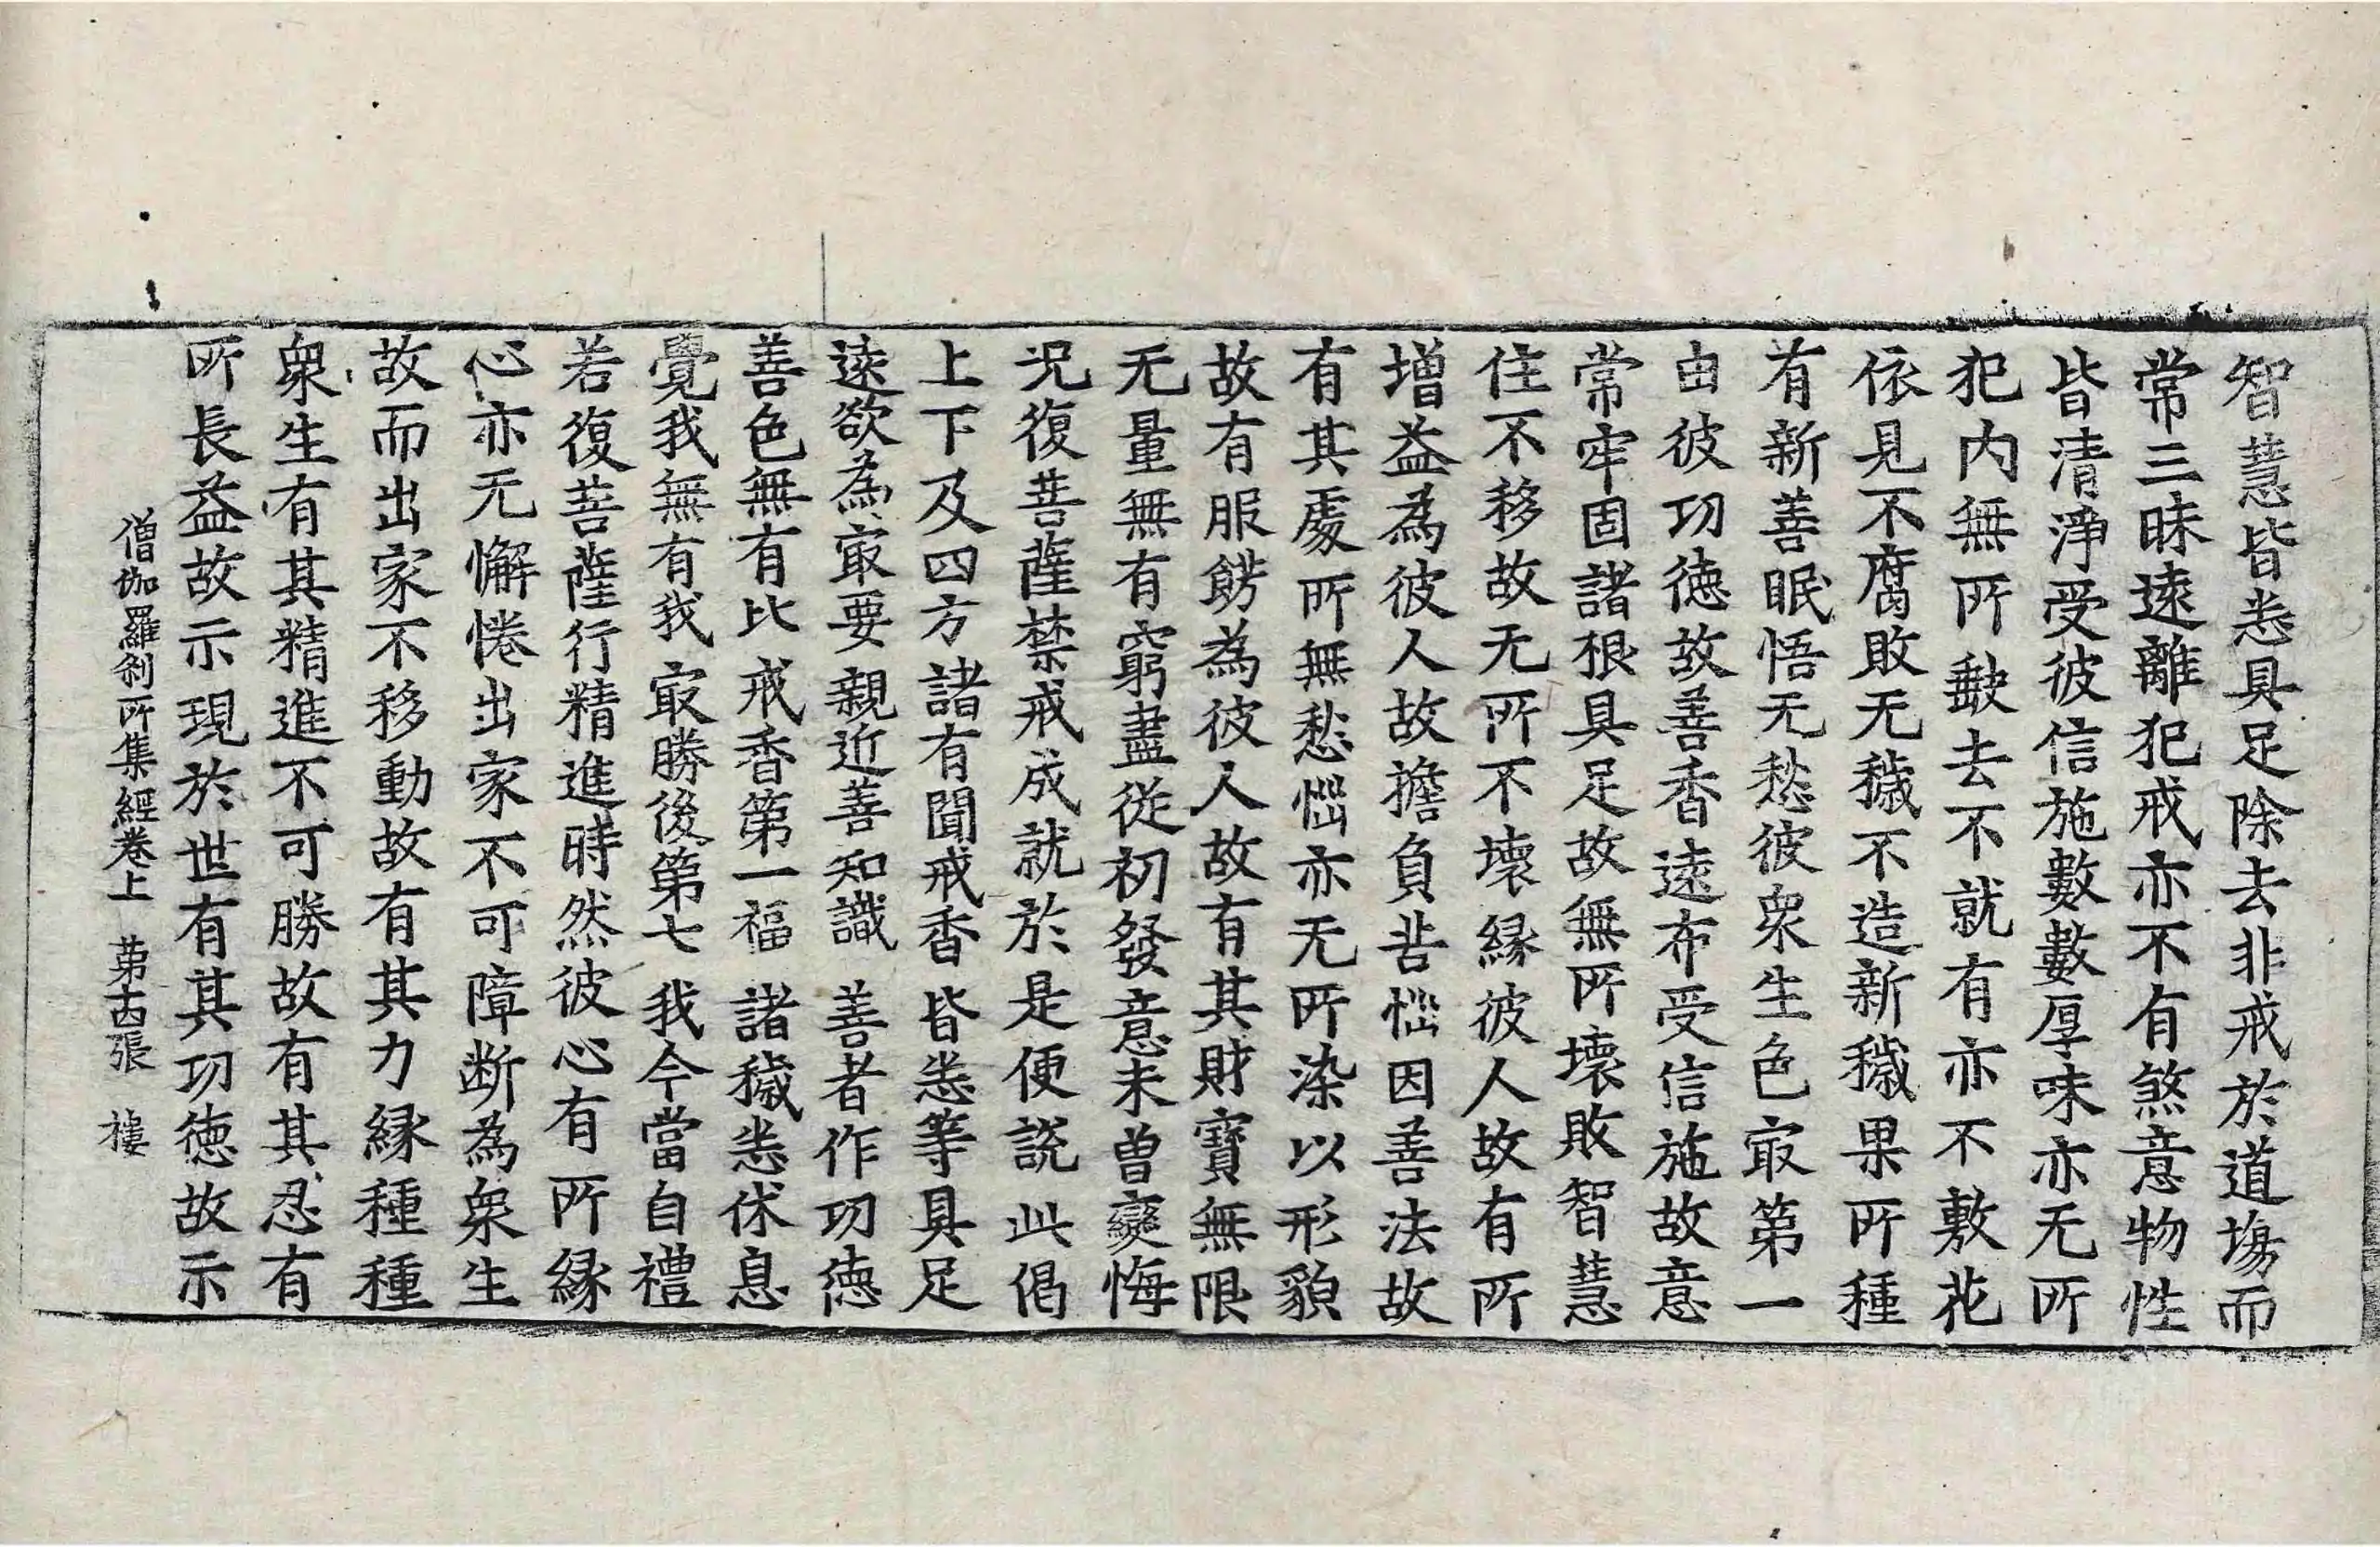 智慧皆悉具足除去非戒於道場而
常三昧遠離犯戒亦不有煞意物性
皆清淨受彼信施數數厚味亦无所
犯内無所𡙇去不就有亦不敷花
依見不腐敗无穢不造新穢果所種
有新善眠悟无愁彼衆生色㝡第一
由彼功德故善香遠布受信施故意
常牢固諸根具足故無所壞敗智慧
住不移故无所不壞縁彼人故有所
増益為彼人故擔負苦惱因善法故
有其處所無愁惱亦无所染以形貌
故有服餝為彼人故有其財寶無限
无量無有窮盡從初發意未曽變悔
况復菩薩禁戒成就於是便説此偈
上下及四方 諸有聞戒香 皆悉等具足
遠欲為㝡要 親近善知識 善者作功德
善色無有比 戒香第一福 諸穢悉休息
覺我無有我 㝡勝後第七 我今當自禮
若復菩薩行精進時然彼心有所縁
心亦无懈惓出家不可障断為衆生
故而出家不移動故有其力縁種種
衆生有其精進不可勝故有其忍有
所長益故示現於世有其功德故示
僧伽羅刹所集經卷上 第古張 樓